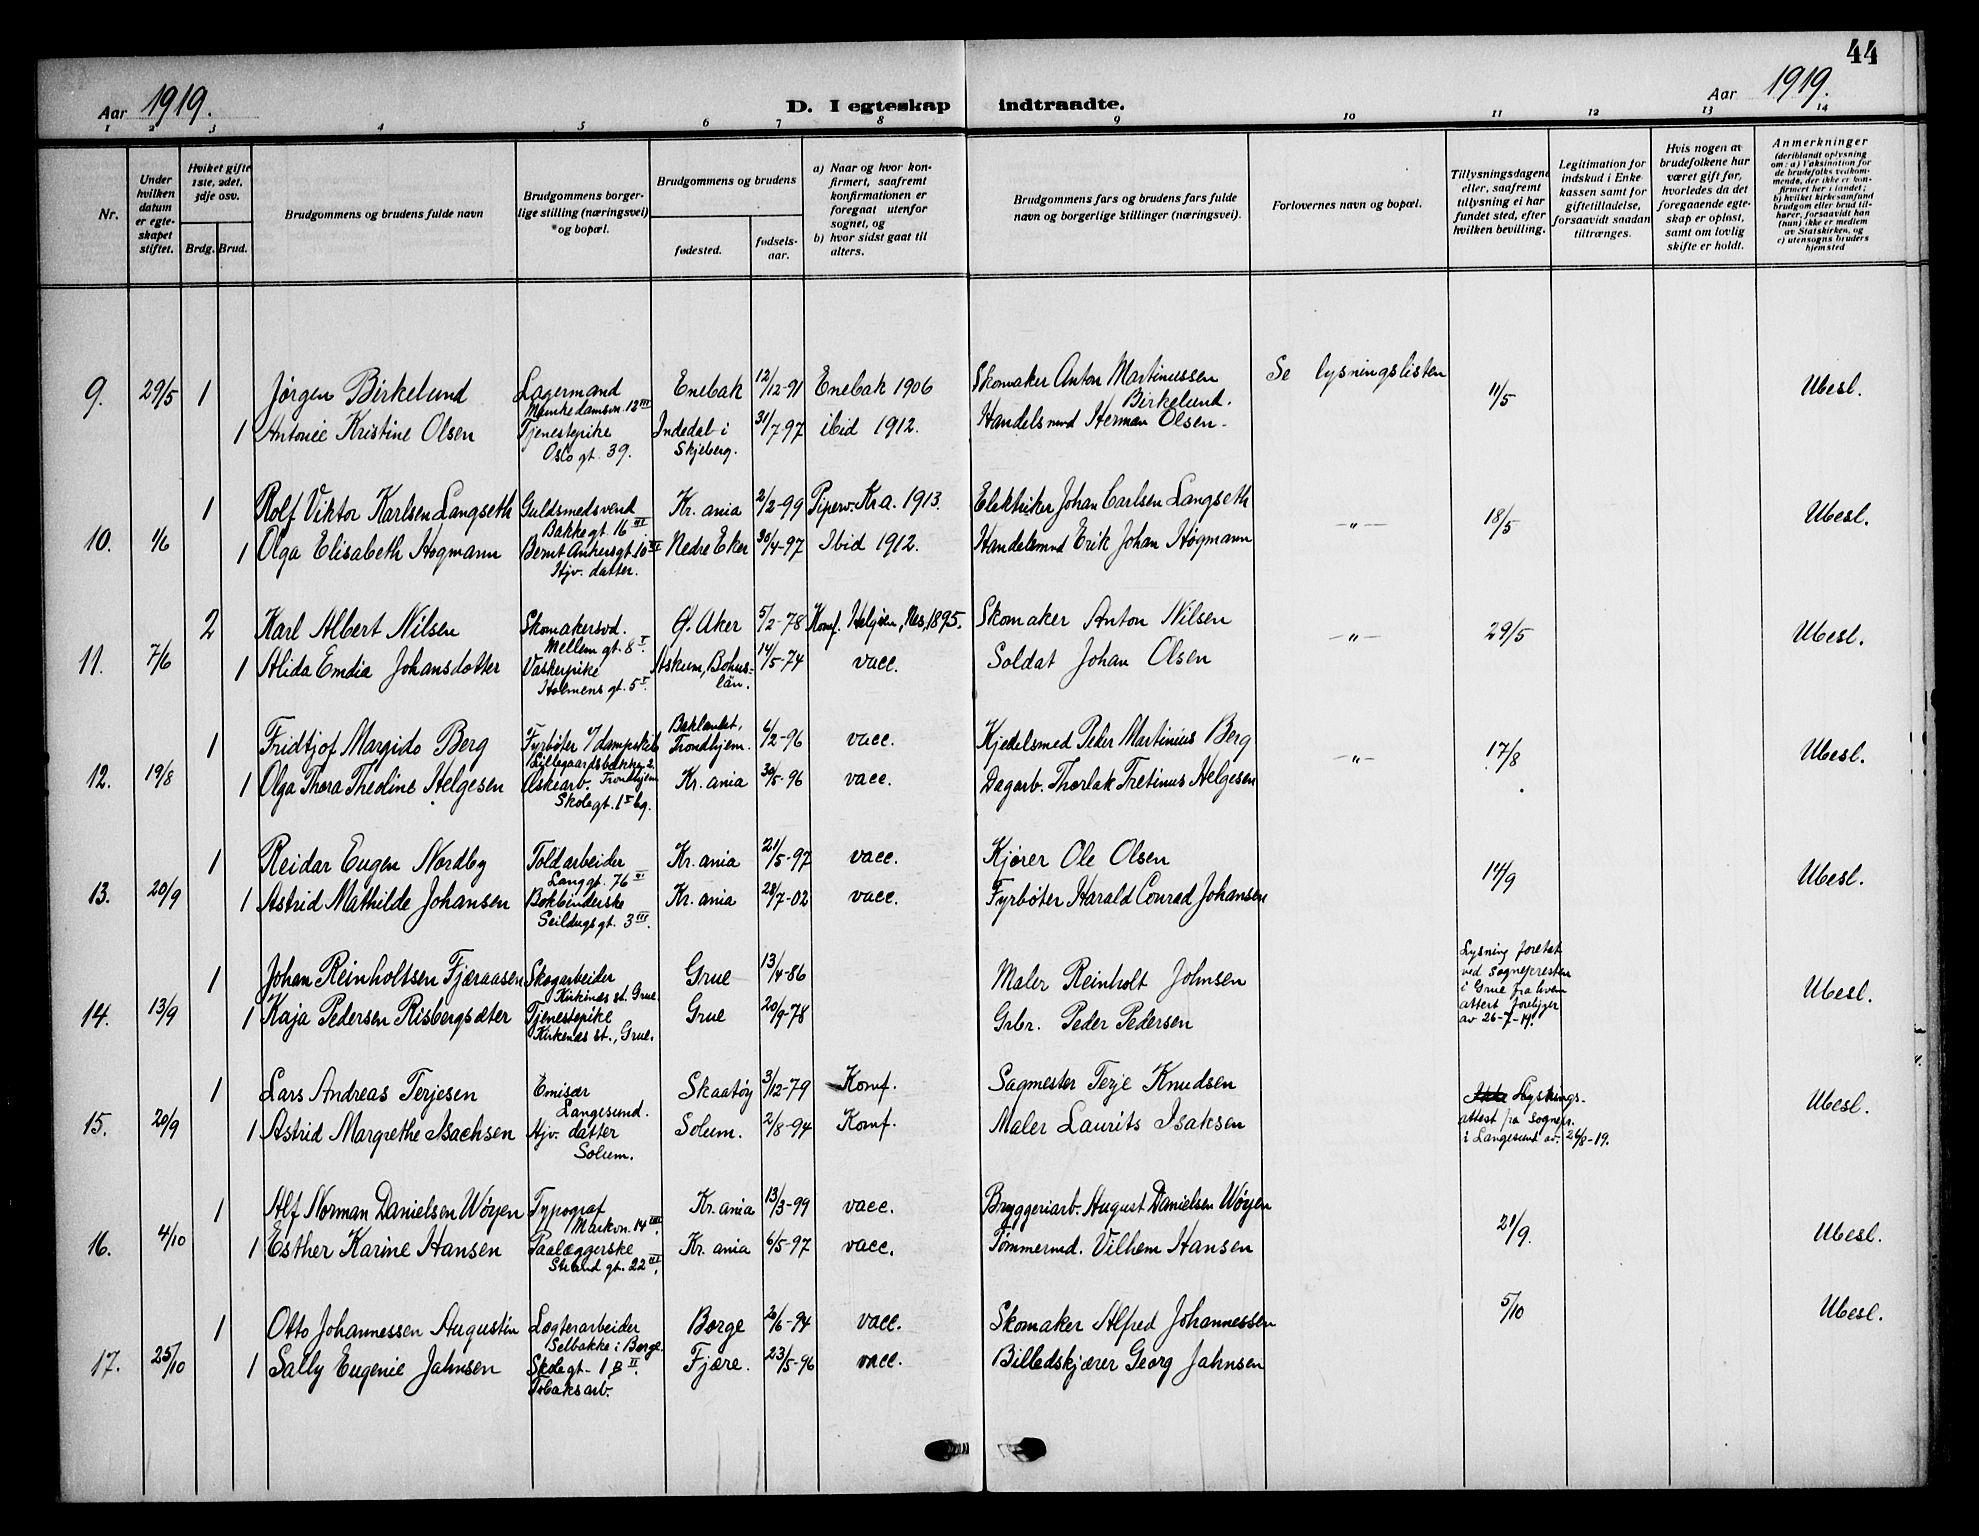 44
Aar 1919.
D. I egteskap indtraadte.
Aar 1919.
1 2 3 4 5 6 7 8 9 10 11 12 13 14
Nr.
Under hvilken datum er egteskapet stiftet.
Hviket gifte 1ste, 2det, 3dje osv.
Brdg. Brud.
Brudgommens og brudens fulde navn
Brudgommens borgerlige stilling (næringsvei) og bopæl.
Brudgommens og brudens
fødested.
fødselsaar.
a) Naar og hvor konfirmert, saafremt konfirmationen er foregaat utenfor sognet, og
b) hvor sidst gaat til alters.
Brudgommens fars og brudens fars fulde navn og borgerlige stillinger (næringsvei).
Forlovernes navn og bopæl.
Tillysningsdagene eller, saafremt tillysning ei har fundet sted, efter hvilken bevilling.
Legitimation for indskud i Enkekassen samt for giftetilladelse, forsaavidt saadan tiltrænges.
Hvis nogen av brudefolkene har været gift før, hvorledes da det foregaaende egteskap er opløst, samt om lovlig skifte er holdt.
Anmerkninger
(deriblandt oplysning om: a) Vaksination for de brudefolks vedkommende, der ikke er konfirmert her i landet; b) hvilket kirkesamfund brudgom eller brud tilhører, forsaavidt han (hun) ikke er medlem av Statskirken, og c) utensogns bruders hjemsted
9. 29/5 1 Jørgen Birkelund Lagermand Munkedamsvn. 12 III Enebak 12/12-91 Enebak 1906 Skomaker Anton Martinussen Birkelund. Se lysningslisten 11/5 Ubesl.
1 Antonie Kristine Olsen Tjenestepike Oslo gt. 39. Indedal i Skjeberg. 31/7-97 ibid 1912. Handelsmnd Herman Olsen.
10. 1/6 1 Rolf Viktor Karlsen Langseth Guldsmedsvend Bakkegt 16 III Kr.ania 2/2-99 Piperv. Kra. 1913. Elektriker Johan Carlsen Langseth -"- 18/5 Ubesl.
1 Olga Elisabeth Høgmann Bernt Ankersgt. 10 Hjv. datter. Nedre Eker 30/4-97 Ibid 1912. Handelsmnd Erik Johan Høgmann
11. 7/6 2 Karl Albert Nilsen Skomakersvd. Mellem gt. 8 I. Ø. Aker 5/2-78 Konf. Helgøen, Nes, 1895. Skomaker Anton Nilsen -"- 29/5 Ubesl.
1 Alida Emdia Johansdotter Vaskepike Holmens gt. 5 I. Askum, Bohuslän. 14/5-74 vacc. Soldat Johan Olsen
12. 19/8 1 Fridtjof Margido Berg Fyrbøter s/ dampskib Lillegaardsbakken 2. Trondhjem Baklandet, Trondhjem. 6/2-96 vacc. Kjedelsmed Peder Martinius Berg -"- 17/8 Ubesl.
1 Olga Thora Theoline Helgesen Æskearb. Skolegt. 1 I bg. Kr.ania 30/5-96 vacc. Dagarb. Thorlak Tretinus Helgesen
13. 20/9 1 Reidar Eugen Nordby Toldarbeider Langgt. 76 Kr.ania 21/5-97 vacc. Kjører Ole Olsen 14/9 Ubesl.
1 Astrid Mathilde Johansen Bokbinderske Seildugsgt. 3 III. Kr.ania 28/7-02 vacc. Fyrbøter Harald Conrad Johansen
14. 13/9 1 Johan Reinholtsen Fjæraasen Skogarbeider Kirkenæs st. Grue. Grue 13/4-86 Maler Reinholt Johnsen Lysning foretat ved sognepresten i Grue fra hvem attest foreligger av 26-7-19. Ubesl.
1 Kaja Pedersen Risbergsæter Tjenestepike Kirkenæs st., Grue. Grue 20/9-78 Grbr. Peder Pedersen
15. 20/9 1 Lars Andreas Terjesen Emisær Langesund. Skaatøy 3/12-79 Konf. Sagmester Terje Knudsen Lysningsattest fra sognepr. i Langesund av. 26/8-19. Ubesl.
1 Astrid Margrethe Isachsen Hjv. datter Solum. Solum. 2/8-94 Konf. Maler Laurits Isaksen
16. 4/10 1 Alf Norman Danielsen Wøyen Typograf Markvn. 14 Kr.ania 13/3-99 vacc. Bryggeriarb. August Danielsen Wøyen 21/9. Ubesl.
1 Esther Karine Hansen Paalæggerske Strand gt. 22 Kr.ania 6/5-97 vacc. Tømmermd. Vilhem Hansen
17. 25/10 1 Otto Johannessen Augustin Lægterarbeider Selbakke i Borge. Borge 20/6-94 vacc. Skomaker Alfred Johannessen 5/10 Ubesl.
1 Sally Eugenie Jahnsen Skolegt- 18 II. Tobaksarb. Fjære. 23/5-96 vacc. Billedskjærer Georg Jahnsen